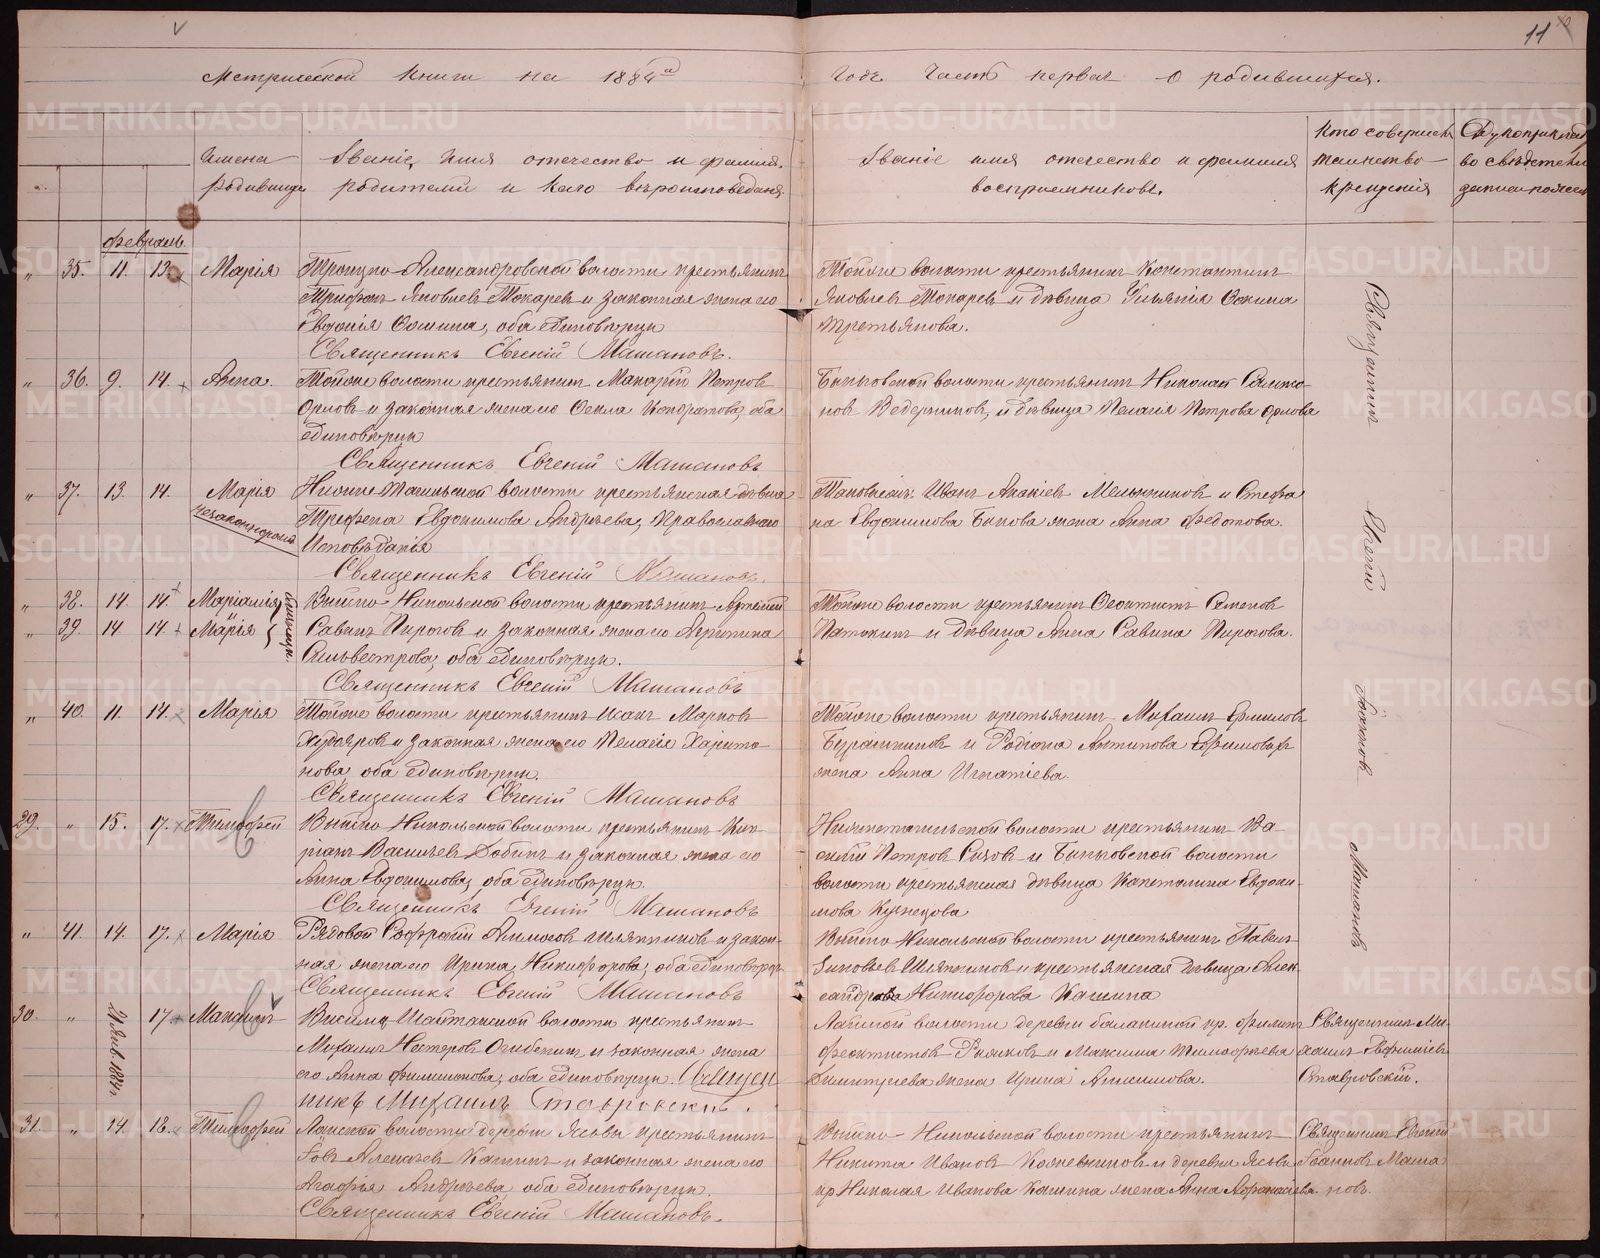 11
Метрической книги на 1884й годъ часть первая о родившихся.
Имена родившихся
Званіе, имя отечество и фамилія родителей и какого вероисповеданія
Званіе имя отечество и фамилия восприемниковъ.
Кто совершалъ таинство крещенія
Рукоприкладство свидетелей
февраль
" 35. 11. 13. Марія
Троицко-Александровской волости крестьянинъ
Трифонъ Яковлевъ Токаревъ и законная жена его
Евдокія Фомина, оба единоверцы
Священникъ Евгеній Машановъ.
Тойже волости крестьянинъ Константинъ
Яковлевъ Токаревъ и девица Ульянія Фокина
Третьякова.
" 36. 9. 14. Анна.
Тойже волости крестьянинъ Макарій Петровъ
Орловъ и законная жена его Фекла Кондратова, оба
единоверцы
Священникъ Евгеній Машановъ
Быньговской волости крестьянинъ Николай
Ведерниковъ, и девица Пелагія Петрова Орлова
" 37. 13. 14. Марія незаконнорожд.
Нижне-Тагильской волости крестьянская девица
Трефена Евдокимова Андреева, Православнаго
Исповеданія
Священникъ Евгеній Машановъ.
Таковыеже: Иванъ Ананіевъ Мельниковъ и Стефа-
на Евдокимова Быкова жена Анна Федотова.
" 38. 14. 14. Маріамія
" 39. 14. 14. Марія близнецы
Выйско-Никольской волости крестьянинъ Артемій
Савинъ Пироговъ и законная жена его Агрипина
Сильвестрова, оба единоверцы.
Священникъ Евгеній Машановъ
Тойже волости крестьянинъ Феоктистъ Семеновъ
Паткинъ и девица Анна Савина Пирогова.
" 40. 11. 14. Марія
Тойже волости крестьянинъ Исакъ Марковъ
Худояровъ и законная жена его Пелагія Харито-
нова, оба единоверцы.
Священникъ Евгеній Машановъ
Тойже волости крестьянинъ Михаилъ Ермиловъ
и Родіона Антипова
жена Анна Игнатіева.
29. " 15. 17. Тимофей
Выйско-Никольской волости крестьянинъ Кип-
ріанъ Васильевъ Бабинъ и законная жена его
Анна Евдокимова, оба единоверцы.
Священникъ Евгеній Машановъ
Нижнетагильской волости крестьянинъ Ва-
силій Петровъ Сизовъ и Быньговской волости
волости крестьянская девица Капеталина Евдоки-
мова Кузнецова
" 41. 14. 17. Марія
Рядовой Софроній и закон-
ная жена его Ирина Никифорова, оба единоверцы
Священникъ Евгеній Машановъ
Выйско-Никольской волости крестьянинъ Павелъ
Зиновьевъ и крестьянская девица Алек-
сандра Никифорова Кашина
Священникъ Евгеній Іоанновъ Машановъ
30. " 21 Янв. 1884г. 17. Максимъ
Висимо-Шайтанской волости крестьянинъ
Михаилъ Нестеровъ Огибенинъ и законная жена
его Анна Филимонова, оба единоверцы. Священ
никъ Михаилъ Ставровскій.
Лайской волости деревни балакиной кр. Филипъ
Феоктистовъ и Максима Тимофеева
Димитріева жена Ирина Анисимова.
Священникъ Ми-
хаилъ Евфиміевъ
Ставровскій.
31. " 14. 18. Тимофей
Лайской волости деревни Ясьвы крестьянинъ
Іовъ Алексеевъ Кашинъ и законная жена его
Агафья Андреева оба единоверцы.
Священникъ Евгеній Машановъ.
Выйско-Никольской волости крестьянинъ
Никита Ивановъ Кожевниковъ и деревни Ясьвы
кр Николая Иванова Кашина жена Анна Афанасіева.
Священникъ Евгеній
Іоанновъ Маша
новъ.
METRIKI.GASO-URAL.RU